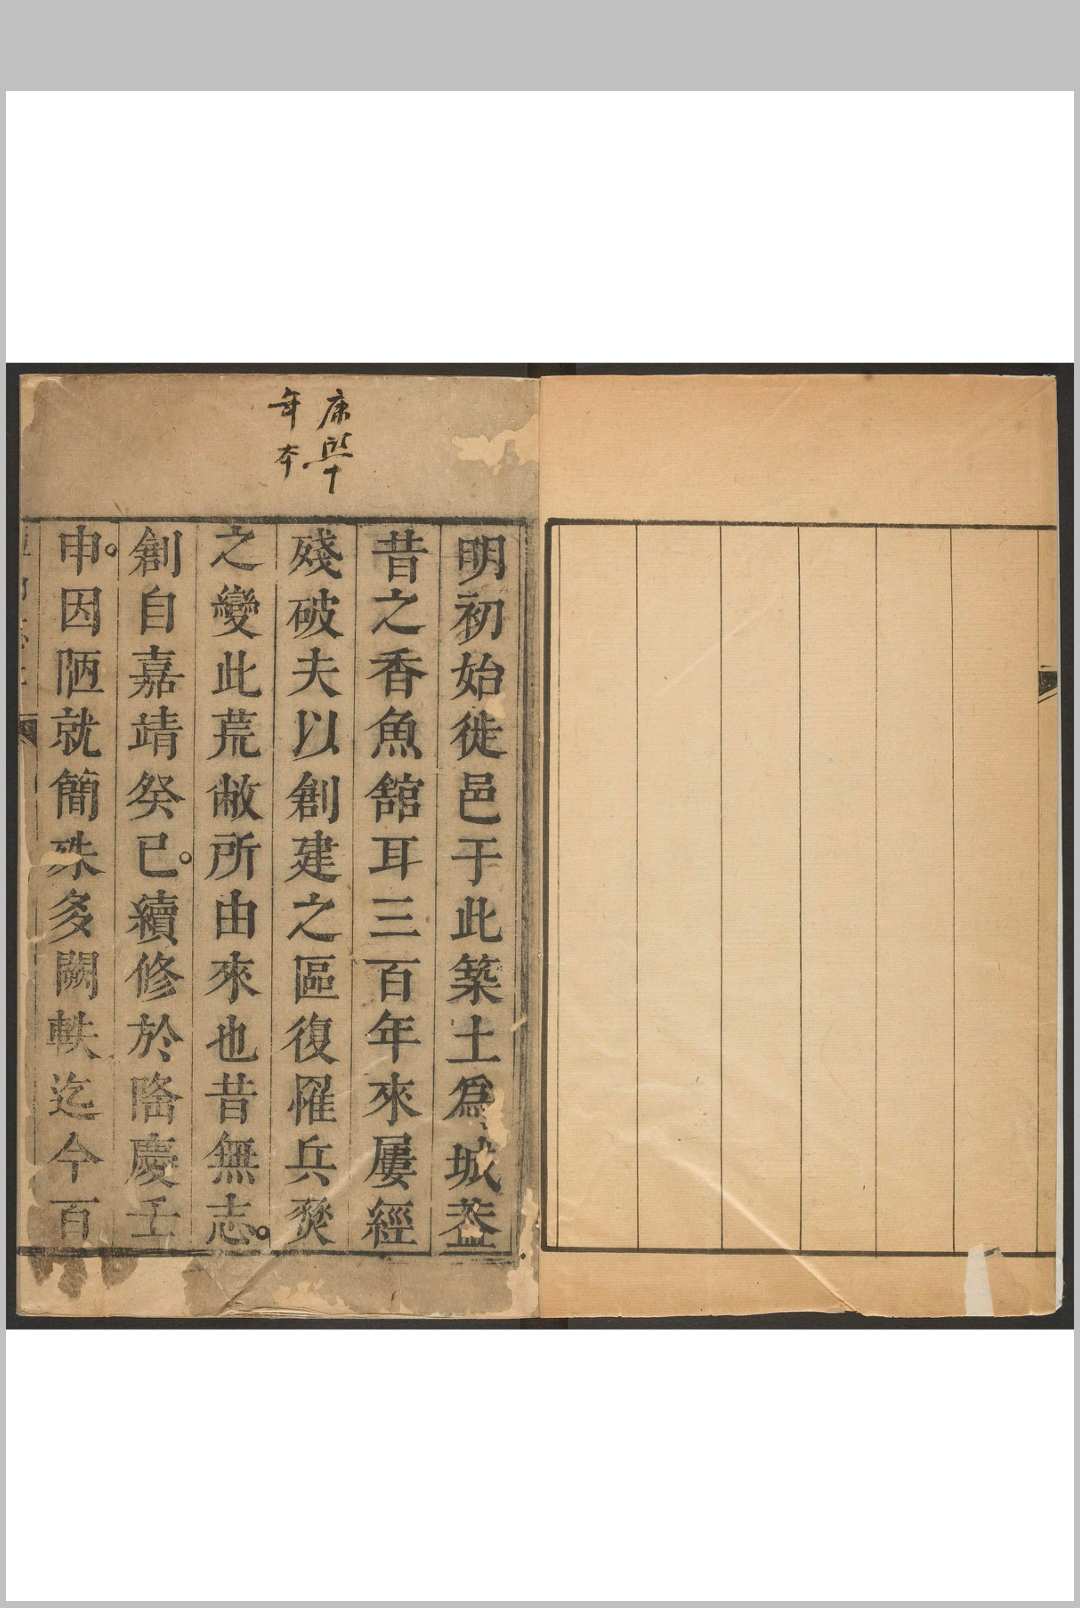 康熙十
年本
明初始徙邑于此築土爲城葢
昔之香魚舘耳三百年來屢經
殘破夫以創建之區復罹兵燹
之變此荒敝所由來也昔無志。
創自嘉靖癸已。續修於隆慶壬
申。因陋就簡殊多闕軼迄今百